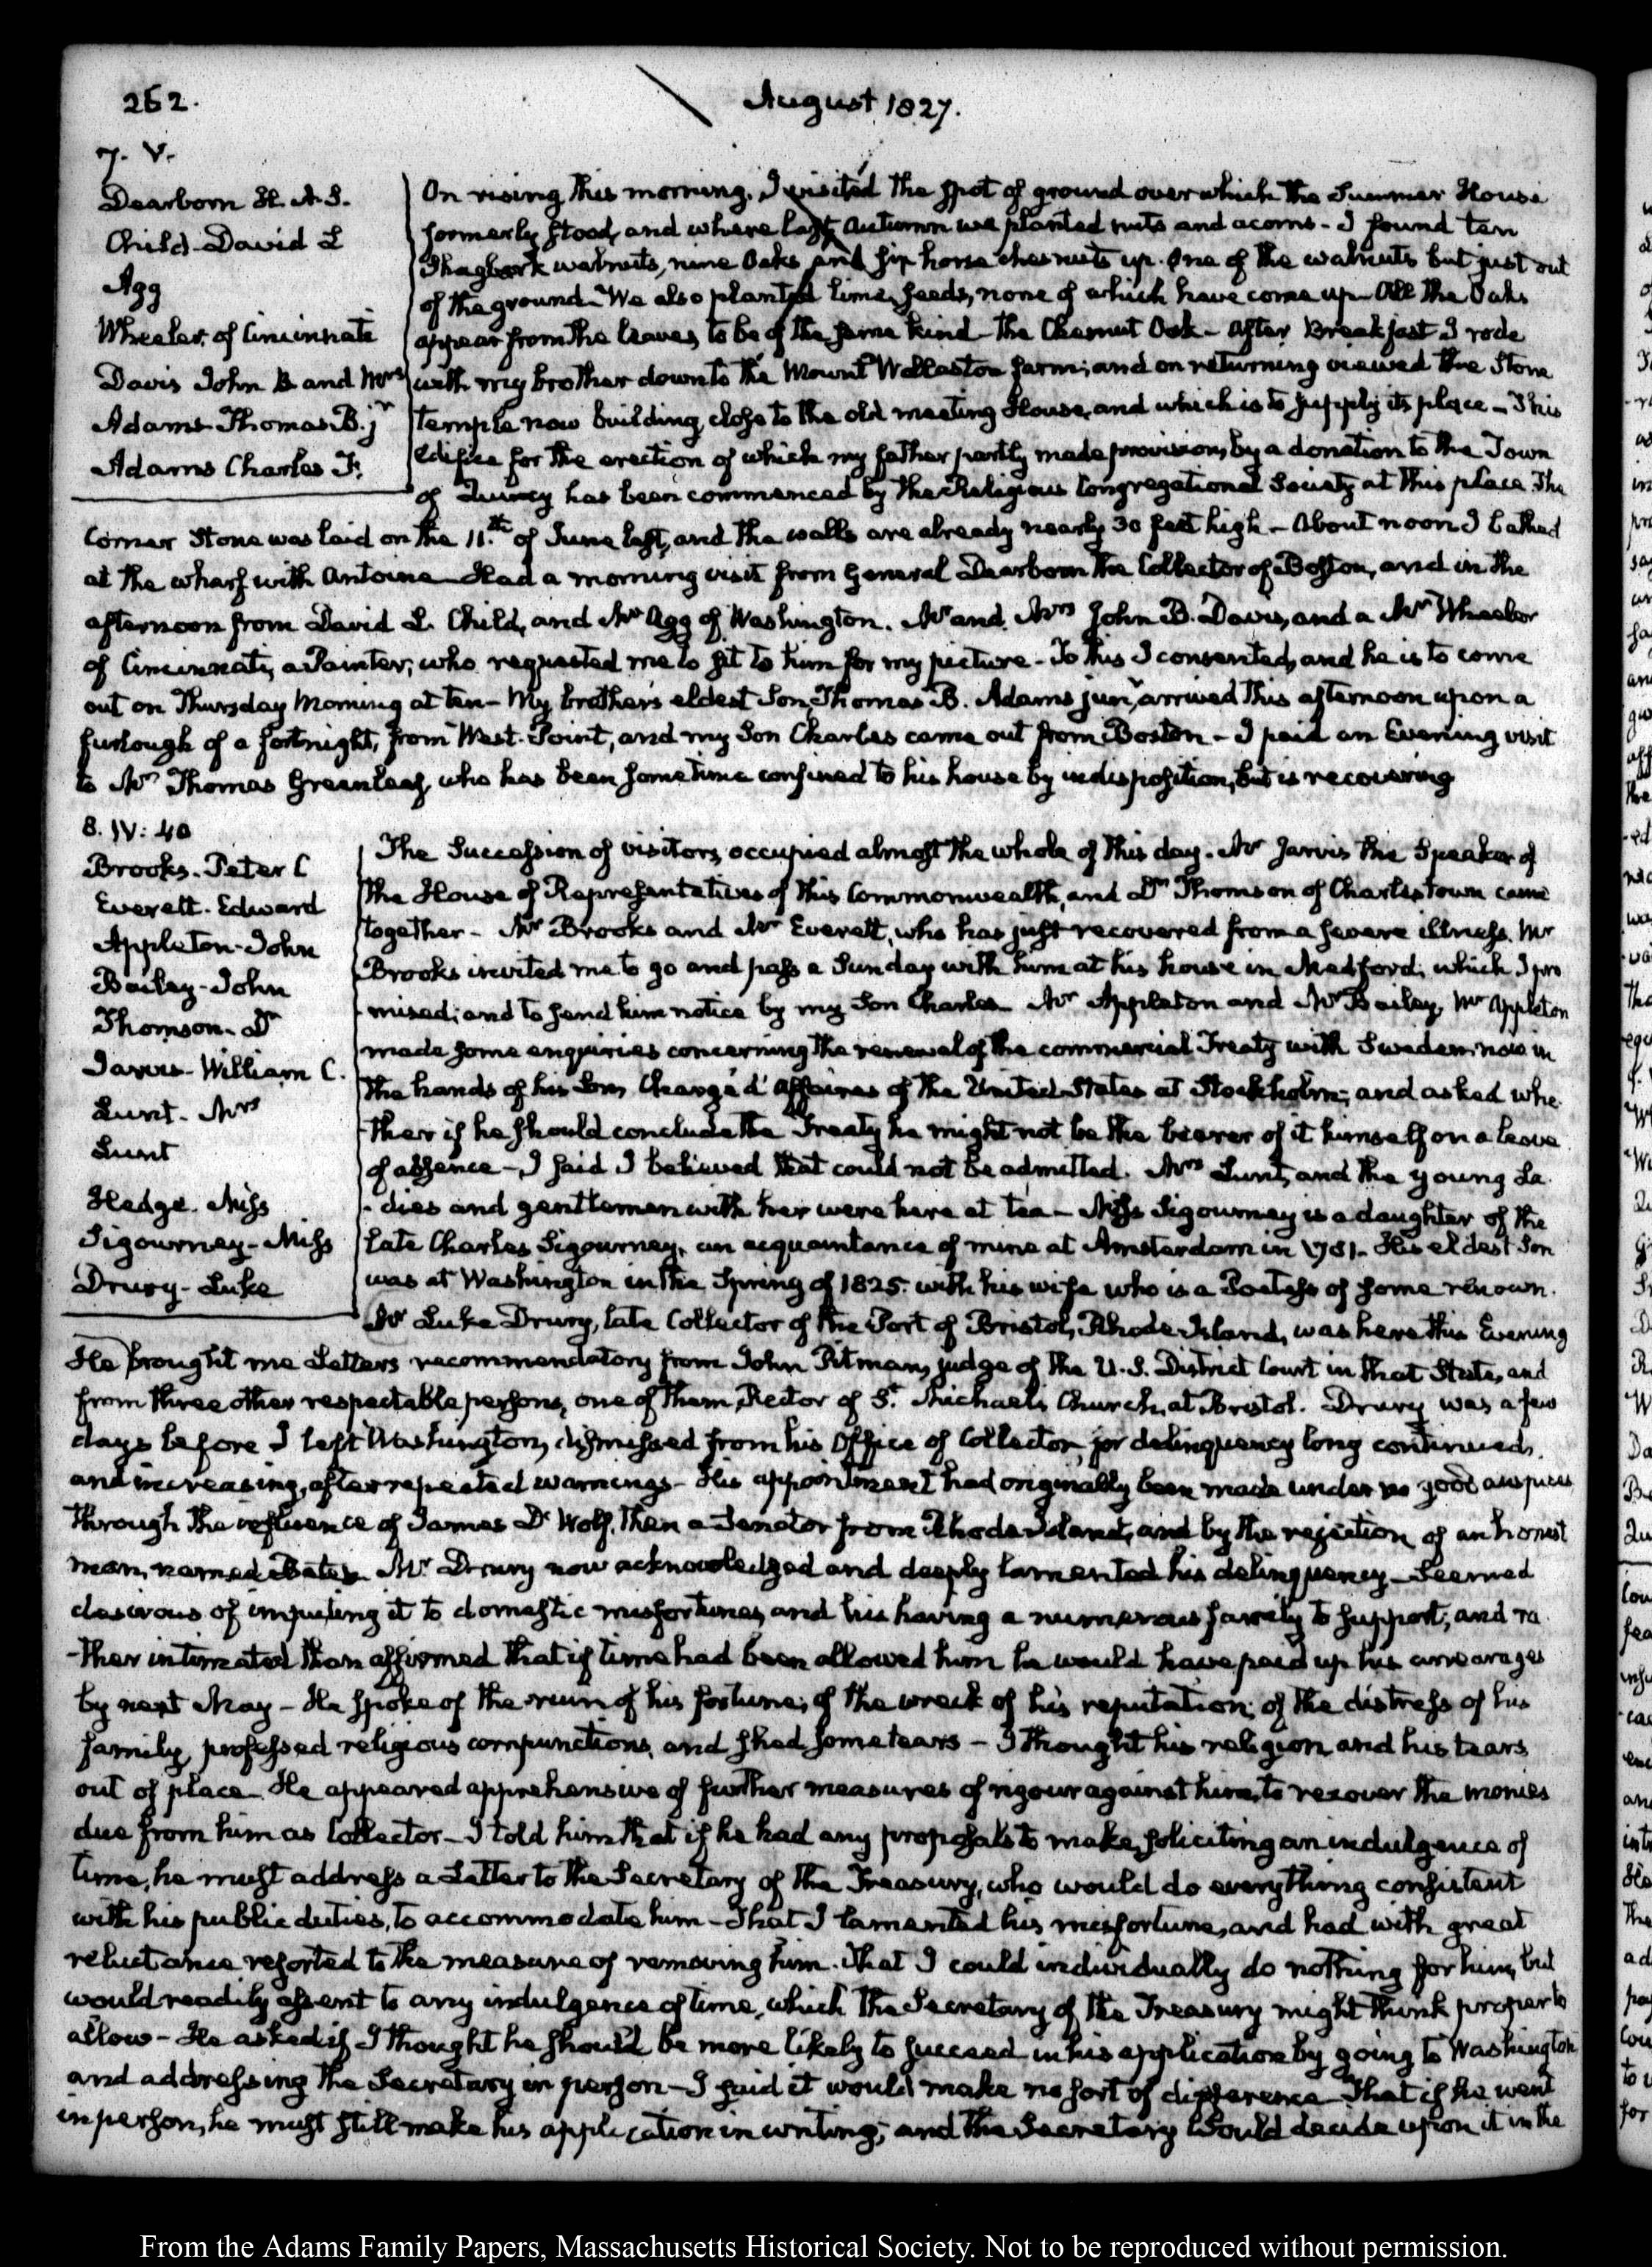 262.
August 1827.
7. V.
Dearborn H. A. S.
Child - David L
Agg
Wheeler, of Cincinnati
Davis John B and Mrs
Adams Thomas B. jr
Adams Charles F.
On rising this morning, I visited the spot of ground over which the Summer House
formerly stood, and where last Autumn we planted nuts and acorns - I found ten
Shagbark walnuts, nine Oaks and six horse chesnuts up. One of the walnuts but just out
of the ground - We also planted lime seeds, none of which have come up - All the Oaks
appear from the leaves to be of the same kind - the Chesnut Oak - After Breakfast I rode
with my brother down to the Mount Wollaston farm; and on returning viewed the Stone
temple now building, close to the old meeting House, and which is to supply its place - This
edifice for the erection of which my father partly made provision, by a donation to the Town
of Quincy has been commenced by the Religious Congregational Society at this place. The
Corner Stone was laid on the 11.th of June last, and the walls are already nearly 30 feet high - About noon I bathed
at the wharf with Antoine - Had a morning visit from General Dearborn the Collector of Boston, and in the
afternoon from David L. Child, and Mr Agg of Washington. Mr and Mrs John B. Davis, and a Mr Wheeler
of Cincinnati, a Painter, who requested me to sit to him for my picture - To this I consented, and he is to come
out on Thursday Morning at ten - My brother's eldest Son, Thomas B. Adams junr arrived this afternoon upon a
furlough of a fortnight, from West-Point, and my Son Charles came out from Boston - I paid an Evening visit
to Mr Thomas Greenleaf, who has been sometime confined to his house by indisposition, but is recovering
8. IV: 40
Brooks. Peter C
Everett. Edward
Appleton - John
Bailey - John
Thomson - Dr
Jarvis - William C.
Lunt - Mrs
Lunt
Hedge. Miss
Sigourney - Miss
Drury - Luke
The Succession of visitors, occupied almost the whole of this day. Mr Jarvis the Speaker of
the House of Representatives of this Commonwealth, and Dr Thomson of Charlestown came
together - Mr Brooks and Mr Everett, who has just recovered from a severe illness. Mr
Brooks invited me to go and pass a Sunday with him at his house in Medford, which I pro
mised; and to send him notice by my Son Charles - Mr Appleton and Mr Bailey, Mr Appleton
made some enquiries concerning the renewal of the commercial Treaty with Sweden, now in
the hands of his Son, Chargé d'Affaires of the United States at Stockholm; and asked whe
-ther if he should conclude the Treaty he might not be the bearer of it himself on a leave
of absence - I said I believed that could not be admitted. Mrs Lunt, and the young La
-dies and gentleman with her were here at tea - Miss Sigourney is a daughter of the
late Charles Sigourney, an acquaintance of mine at Amsterdam in 1781. His eldest Son
was at Washington in the Spring of 1825. with his wife who is a Poetess of some renown.
Mr Luke Drury, late Collector of the Port of Bristol, Rhode-Island, was here this Evening
He brought me Letters recommendatory from John Pitman, judge of the U.S. District Court in that State, and
from three other respectable persons, one of them, Rector of St. Michael's Church, at Bristol. Drury was a few
days before I left Washington, dismissed from his Office of Collector, for delinquency long continued,
and increasing, after repeated warnings - His appointment had originally been made under no good auspices
through the influence of James D' Wolf, then a Senator from Rhode Island, and by the rejection of an honest
man, named Bates. Mr Drury now acknowledged and deeply lamented his delinquency - Seemed
desirous of imputing it to domestic misfortunes, and his having a numerous family to support; and ra
-ther intimated than affirmed that if time had been allowed him he would have paid up his arrearages
by next May - He spoke of the ruin of his fortune; of the wreck of his reputation; of the distress of his
family, professed religious compunctions, and shed some tears - I thought his religion and his tears
out of place - He appeared apprehensive of further measures of rigour against him, to recover the monies
due from him as Collector - I told him that if he had any proposals to make, soliciting an indulgence of
time, he must address a Letter to the Secretary of the Treasury, who would do everything consistent
with his public duties, to accommodate him - That I lamented his misfortune, and had with great
reluctance resorted to the measure of removing him. That I could individually do nothing for him, but
would readily assent to any indulgence of time, which the Secretary of the Treasury might think proper to
allow - He asked if I thought he should be more likely to succeed in his application by going to Washington
and addressing the Secretary in person - I said it would make no sort of difference - That if he went
in person, he must still make his application in writing; and the Secretary would decide upon it in the
From the Adams Family Papers, Massachusetts Historical Society. Not to be reproduced without permission.